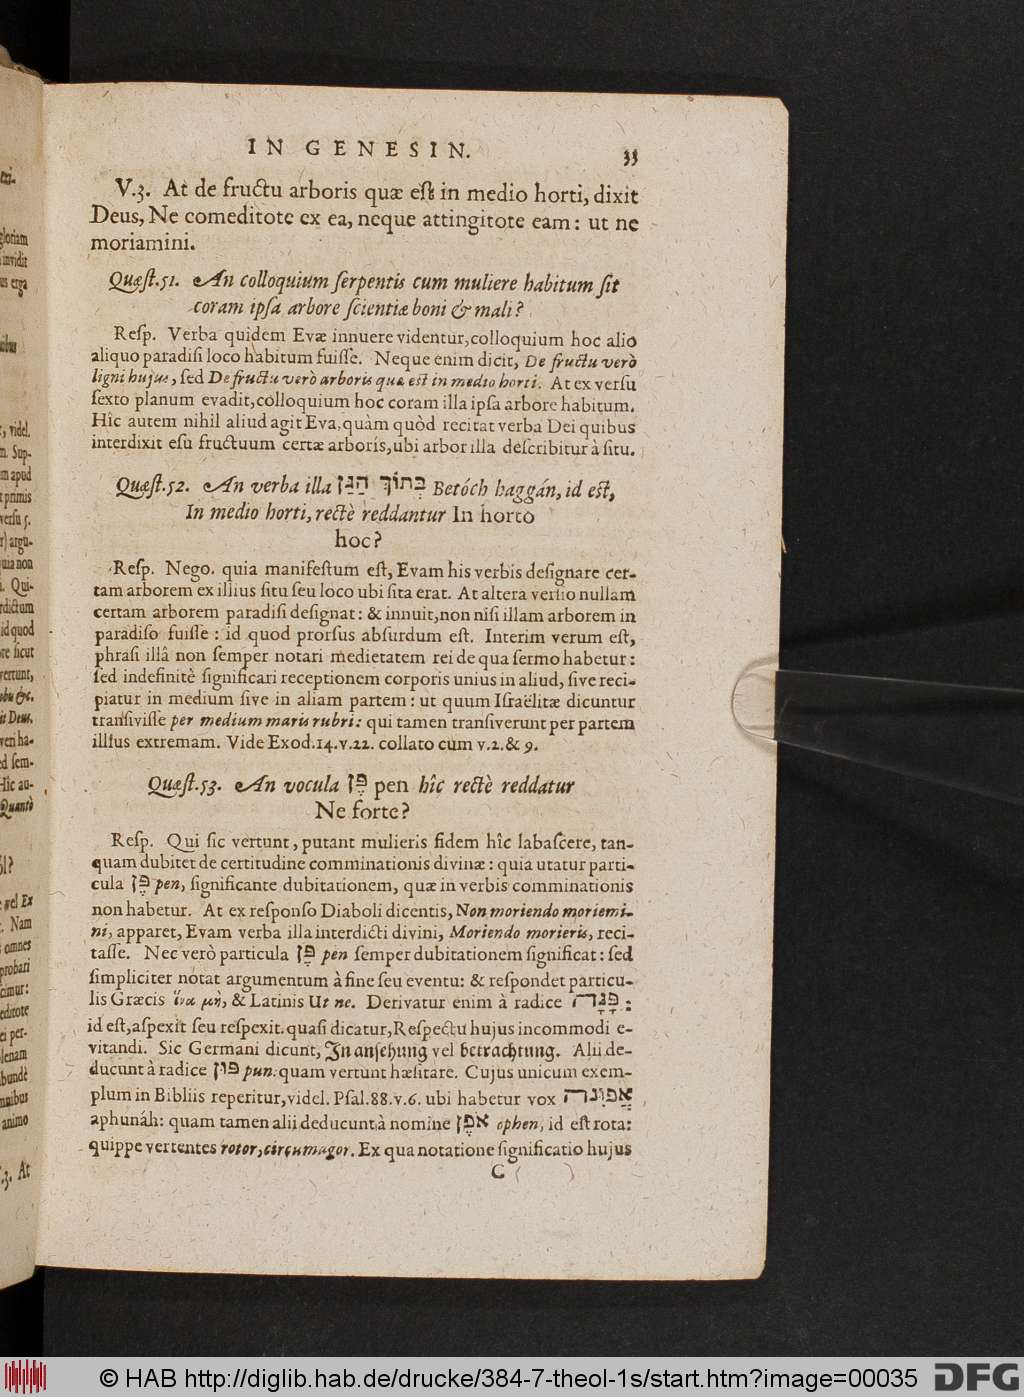 IN GENESIN. 33
V.3. At de fructu arboris quæ est in medio horti, dixit
Deus, Ne comeditote ex ea, neque attingitote eam: ut ne
moriamini.
Quæſt.51. An colloquium ſerpentis cum muliere habitum ſit
coram ipſa arbore ſcientiæ boni & mali?
Reſp. Verba quidem Evæ innuere videntur, colloquium hoc alio
aliquo paradiſi loco habitum fuiſſe. Neque enim dicit, De fructu verò
ligni hujus, ſed De fructu verò arboris quæ est in medio horti. At ex verſu
ſexto planum evadit, colloquium hoc coram illa ipſa arbore habitum.
Hîc autem nihil aliud agit Eva, quàm quòd recitat verba Dei quibus
interdixit eſu fructuum certæ arboris, ubi arbor illa deſcribitur à ſitu.
Quæſt.52. An verba illa בְּתוֹךְ הַגַּן Betóch haggán, id est,
In medio horti, rectè reddantur In horto
hoc?
Reſp. Nego. quia manifeſtum eſt, Evam his verbis deſignare cer-
tam arborem ex illius ſitu ſeu loco ubi ſita erat. At altera verſio nullam
certam arborem paradiſi deſignat: & innuit, non niſi illam arborem in
paradiſo fuiſſe: id quod prorſus abſurdum eſt. Interim verum eſt,
phraſi illâ non ſemper notari medietatem rei de qua ſermo habetur:
ſed indefinitè ſignificari receptionem corporis unius in aliud, ſive reci-
piatur in medium ſive in aliam partem: ut quum Iſraëlitæ dicuntur
tranſiviſſe per medium maris rubri: qui tamen tranſiverunt per partem
illius extremam. Vide Exod.14.v.22. collato cum v.2.& 9.
Quæſt.53. An vocula פֶּן pen hîc rectè reddatur
Ne forte?
Reſp. Qui ſic vertunt, putant mulieris fidem hîc labaſcere, tan-
quam dubitet de certitudine comminationis divinæ: quia utatur parti-
cula פֶּן pen, ſignificante dubitationem, quæ in verbis comminationis
non habetur. At ex reſponſo Diaboli dicentis, Non moriendo moriemi-
ni, apparet, Evam verba illa interdicti divini, Moriendo morieris, reci-
taſſe. Nec verò particula פֶּן pen ſemper dubitationem ſignificat: ſed
ſimpliciter notat argumentum à fine ſeu eventu: & reſpondet particu-
lis Græcis ἵνα μὴ, & Latinis Ut ne. Derivatur enim à radice פָּנָה:
id eſt, aſpexit ſeu reſpexit. quaſi dicatur, Reſpectu hujus incommodi e-
vitandi. Sic Germani dicunt, In anſehung vel betrachtung. Alii de-
ducunt à radice פּוּן pun: quam vertunt hæſitare. Cujus unicum exem-
plum in Bibliis reperitur, videl. Pſal.88.v.6. ubi habetur vox אָפוּנָה
aphunáh: quam tamen alii deducunt à nomine אֹפֶן ophen, id eſt rota:
quippe vertentes rotor, circumagor. Ex qua notatione ſignificatio hujus
C
© HAB http://diglib.hab.de/drucke/384-7-theol-1s/start.htm?image=00035
DFG